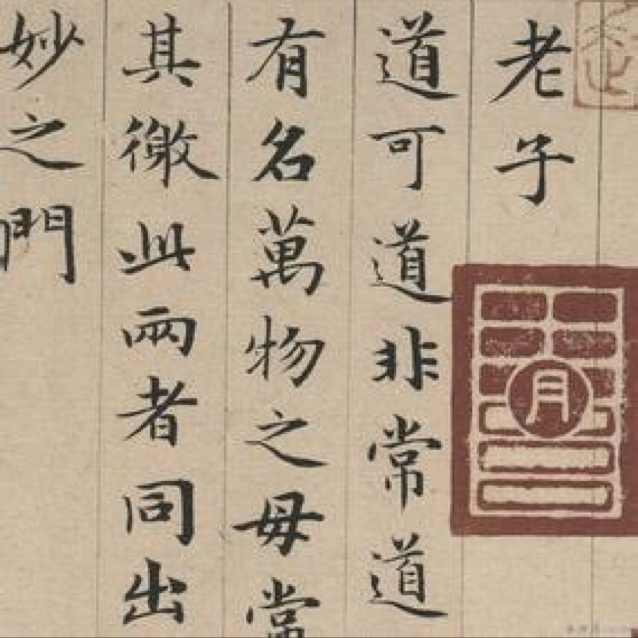 老子
道可道非常道
有名萬物之毋當
其徼此兩者同出
妙之門
月